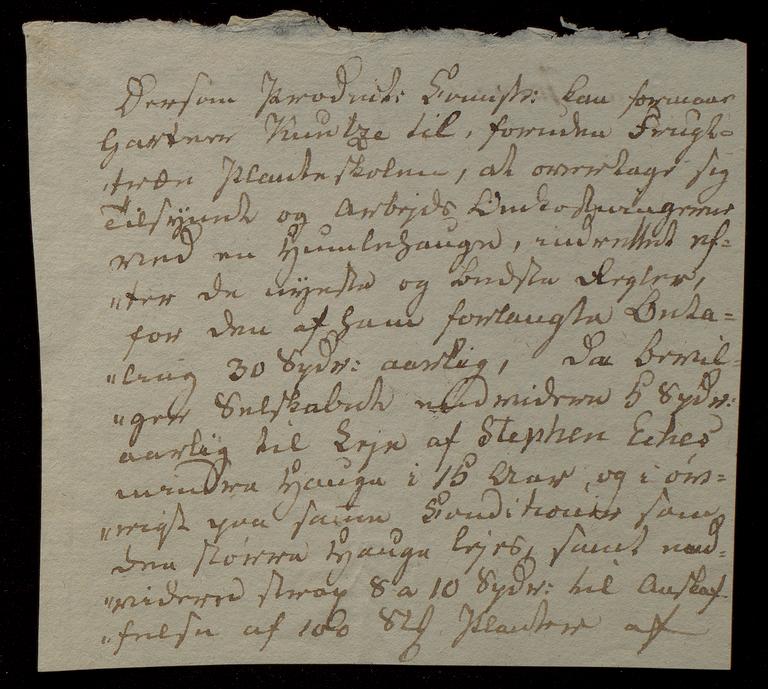 Dersom Product: Comiss: kan formaae
Gartner Kuntze til, foruden Frugt-
"træe Planteskolen, at overtage sig
Tilsynet og Arbejds Omkostningerne
ved en Humlehauge, indrettet ef-
"ter de nyeste og bedste Regler,
for den af ham forlangte Beta-
"ling 30 Spdr: aarlig, da bevil-
"ger Selskabet endvidere 5 Spdr:
aarlig til Leje af Stephen Eches
mindre Hauge i 15 Aar, og i øv-
"rigt paa samme Conditioner som
den større Hauge lejes, samt end-
"videre strax 8 a 10 Spdr: til Anskaf-
"felse af 100 Stk Planter af